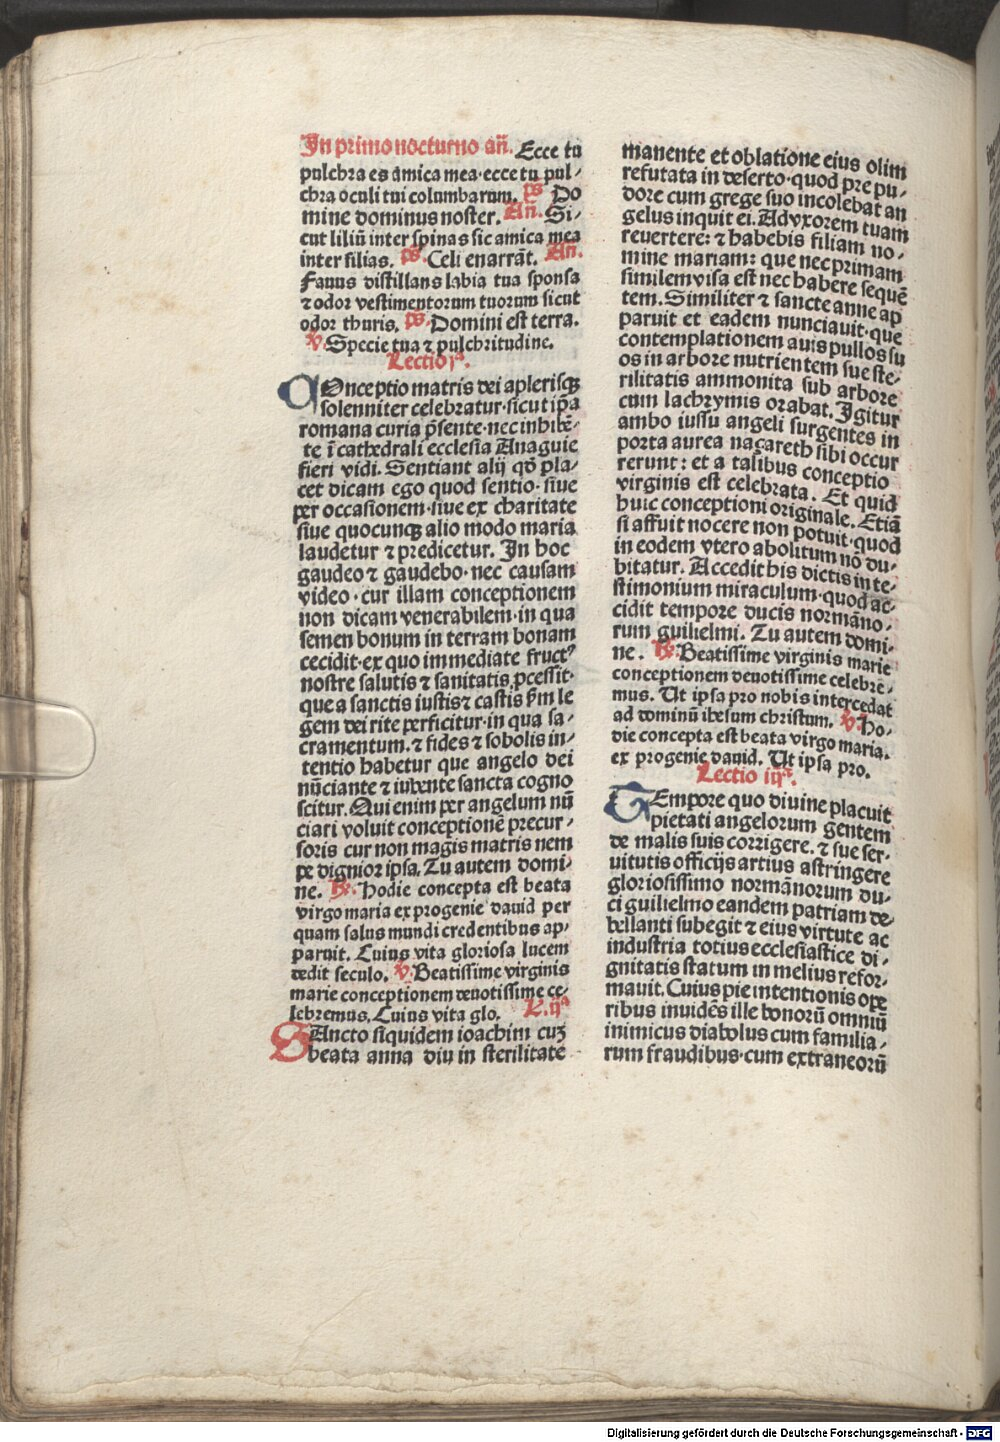 In primo nocturno añ. Ecce tu
pulchra es amica mea·ecce tu pul-
chra oculi tui columbarum. ps̄ Do
mine dominus noster. Añ. Si-
cut liliū inter spinas sic amica mea
inter filias. ps̄. Celi enarrāt. Añ.
Fauus distillans labia tua sponsa
⁊ odor vestimentorum tuorum sicut
odor thuris. ps̄. Domini est terra.
℣. Specie tua ⁊ pulchritudine.
Lectio jª.
COnceptio matris dei a plerisqꝫ
solenniter celebratur·sicut ip̄a
romana curia p̄sente·nec inhibē-
te ī cathedrali ecclesia Anaguie
fieri vidi. Sentiant alij qđ pla-
cet dicam ego quod sentio·siue
per occasionem·siue ex charitate
siue quocunqꝫ alio modo maria
laudetur ⁊ predicetur. In hoc
gaudeo ⁊ gaudebo·nec causam
video·cur illam conceptionem
non dicam venerabilem·in qua
semen bonum in terram bonam
cecidit·ex quo immediate fructꝰ
nostre salutis ⁊ sanitatis ꝓcessit·
que a sanctis iustis ⁊ castis ꝑm le
gem dei rite perficitur·in qua sa-
cramentum·⁊ fides ⁊ sobolis in-
tentio habetur que angelo dei
nūciante ⁊ iubente sancta cogno
scitur. Qui enim per angelum nū
ciari voluit conceptionē precur-
soris cur non magis matris nem
pe dignior ipsa. Tu autem domi-
ne. ℟. Hodie concepta est beata
virgo maria ex progenie dauid per
quam salus mundi credentibus ap-
paruit. Cuius vita gloriosa lucem
dedit seculo. ℣. Beatissime virginis
marie conceptionem deuotissime ce-
lebremus. Cuius vita glo. L. ijª
SAncto siquidem ioachim cuꝫ
beata anna diu in sterilitate
manente et oblatione eius olim
refutata in deserto·quod pre pu-
dore cum grege suo incolebat an
gelus inquit ei. Ad vxorem tuam
reuertere: ⁊ habebis filiam no-
mine mariam: que nec primam
similem visa est nec habere sequē
tem. Similiter ⁊ sancte anne ap
paruit et eadem nunciauit·que
contemplationem auis pullos su
os in arbore nutrientem sue ste-
rilitatis ammonita sub arbore
cum lachrymis orabat. Igitur
ambo iussu angeli surgentes in
porta aurea naçareth sibi occur
rerunt: et a talibus conceptio
virginis est celebrata. Et quid
huic conceptioni originale. Etiā
si affuit nocere non potuit·quod
in eodem vtero abolitum nō du-
bitatur. Accedit his dictis in te-
stimonium miraculum·quod ac-
cidit tempore ducis normāno-
rum guilielmi. Tu autem domi-
ne. ℟. Beatissime virginis marie
conceptionem deuotissime celebrē-
mus. Ut ipsa pro nobis intercedat
ad dominū ihesum christum. ℣. Ho-
die concepta est beata virgo maria.
ex progenie dauid. Ut ipsa pro.
Lectio iijª.
TEmpore quo diuine placuit
pietati angelorum gentem
de malis suis corrigere. ⁊ sue ser-
uitutis officijs artius astringere
gloriosissimo normānorum du-
ci guilielmo eandem patriam de-
bellanti subegit ⁊ eius virtute ac
industria totius ecclesiastice di-
gnitatis statum in melius refor-
mauit. Cuius pie intentionis ope
ribus inuidēs ille bonorū omniū
inimicus diabolus cum familia-
rum fraudibus·cum extraneorū
Digitalisierung gefördert durch die Deutsche Forschungsgemeinschaft - DFG